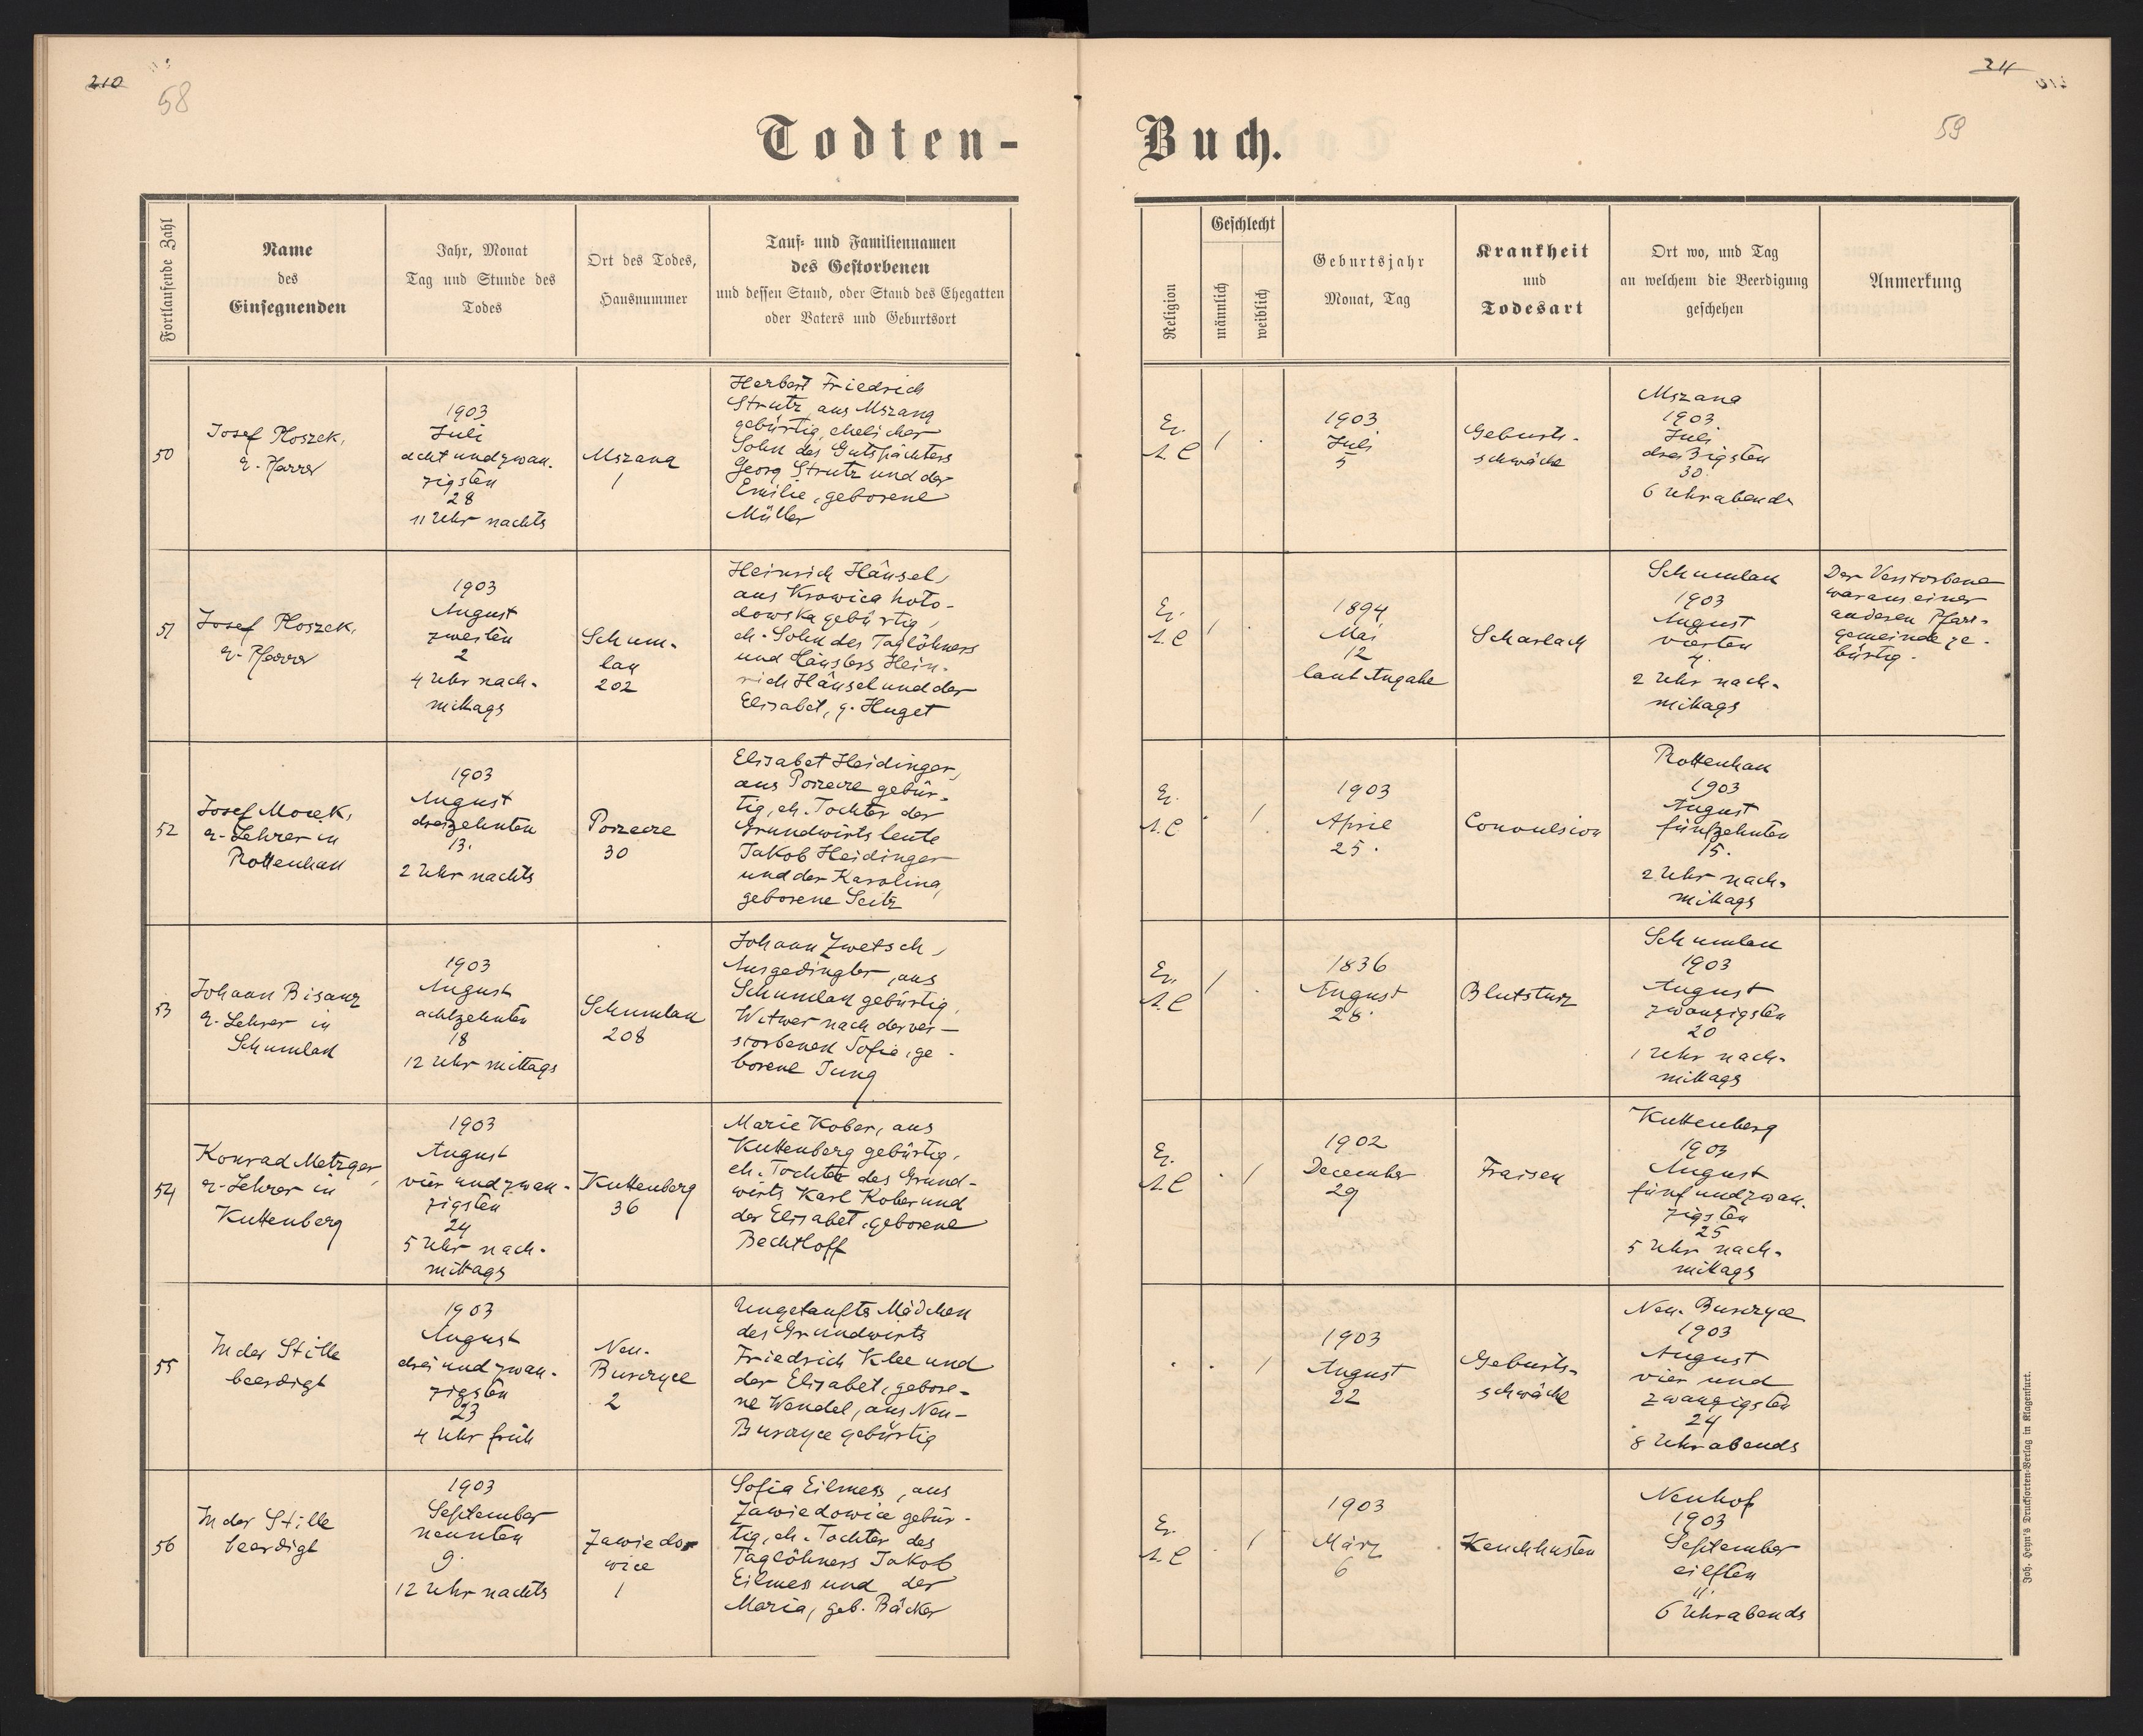 210
58
Todten-
Fortlaufende Zahl
Name
des
Einsegnenden
Jahr, Monat
Tag und Stunde des
Todes
Ort des Todes,
Hausnummer
Tauf- und Familiennamen
des Gestorbenen
und dessen Stand, oder Stand des Ehegatten
oder Vaters und Geburtsort
50
Josef Ploszek,
e. Pfarrer
1903
Juli
acht und zwan-
zigsten
28
11 Uhr nachts
Mszana
1
Herbert Friedrich
Strutz, aus Mszana
gebürtig, ehelicher
Sohn des Gutspächters
Georg Strutz und der
Emilie, geborene
Müller
51
Josef Ploszek,
e. Pfarrer
1903
August
zweiten
2
4 Uhr nach-
mittags
Schum-
lau
202
Heinrich Hänsel,
aus Krowica hoło-
dowska gebürtig,
eh. Sohn des Taglöhners
und Häuslers Hein-
rich Hänsel und der
Elisabet, g. Huget
52
Josef Mocek,
e. Lehrer in
Rottenhan
1903
August
dreizehnten
13.
2 Uhr nachts
Porzecze
30
Elisabet Heidinger,
aus Porzecze gebür-
tig, eh. Tochter der
Grundwirtsleute
Jakob Heidinger
und der Karolina,
geborene Seitz
53
Johann Bisanz
e. Lehrer in
Schumlau
1903
August
achtzehnten
18
12 Uhr mittags
Schumlau
208
Johann Zwetsch,
Ausgedingler, aus
Schumlau gebürtig,
Witwer nach der ver-
storbenen Sofie, ge-
borene Jung
54
Konrad Metzger,
e. Lehrer in
Kuttenberg
1903
August
vier und zwan-
zigsten
24
5 Uhr nach-
mittags
Kuttenberg
36
Marie Kober, aus
Kuttenberg gebürtig,
eh. Tochter des Grund-
wirts Karl Kober und
der Elisabet, geborene
Bechtloff
55
In der Stille
beerdigt
1903
August
drei und zwan-
zigsten
23
4 Uhr früh
Neu-
Burczyce
2
Ungetauftes Mädchen
des Grundwirts
Friedrich Klee und
der Elisabet, gebore-
ne Wendel, aus Neu-
Burczyce gebürtig
56
In der Stille
beerdigt
1903
September
neunten
9.
12 Uhr nachts
Zawiedo-
wice
1
Sofia Eilmess, aus
Zawiedowice gebür-
tig, eh. Tochter des
Taglöhners Jakob
Eilmess und der
Maria, geb. Bäcker
211
59
Buch.
Religion
Geschlecht
männlich
weiblich
Geburtsjahr
Monat, Tag
Krankheit
und
Todesart
Ort wo, und Tag
an welchem die Beerdigung
geschehen
Anmerkung
Ev.
A.C
1
1903
Juli
5
Geburts-
schwäche
Mszana
1903.
Juli
dreißigsten
30.
6 Uhr abends
Ev.
A.C
1
1894
Mai
12
laut Angabe
Scharlach
Schumlau
1903
August
vierten
4.
2 Uhr nach-
mittags
Der Verstorbene
war aus einer
anderen Pfarr-
gemeinde ge-
bürtig.
Ev.
A.C
1
1903
April
25.
Convulsion
Rottenhan
1903
August
fünfzehnten
15.
2 Uhr nach-
mittags
Ev.
A.C
1
1836
August
28.
Blutsturz
Schumlau
1903
August
zwanzigsten
20
1 Uhr nach-
mittags
Ev.
A.C
1
1902
December
29
Fraisen
Kuttenberg
1903
August
fünf und zwan-
zigsten
25
5 Uhr nach-
mittags
1
1903
August
22
Geburts-
schwäche
Neu-Burczyce
1903
August
vier und
zwanzigsten
24
8 Uhr abends
Ev.
A.C
1
1903
März
6
Keuchhusten
Neuhof
1903
September
eilften
11.
6 Uhr abends
Joh. Heyn's Drucksorten-Verlag in Klagenfurt.